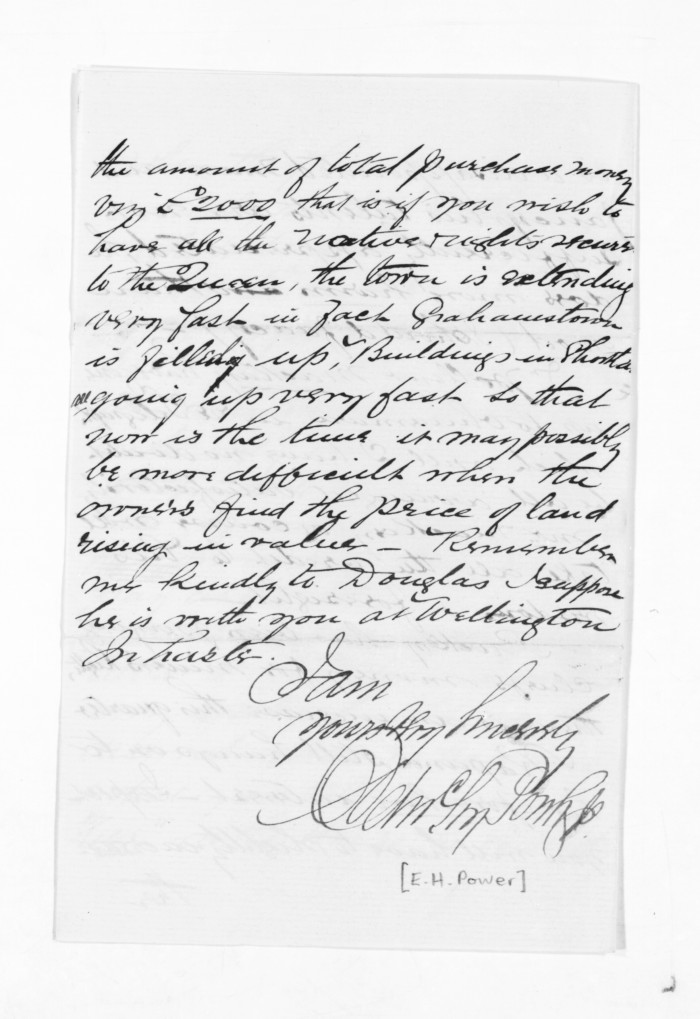 the amount of total purchase money
viz £2000 that is if you wish to
have all the native rights secure
to the Queen, the town is extending
very fast in fact Grahamstown
is filling up, Buildings in Shorta
going up very fast so that
now is the time it may possibly
be more difficult when the
owners find the price of land
rising in value – Remember
me kindly to Douglas I suppose
he is with you at Wellington
In haste.
I am
yours very sincerely
[E.H. Power]